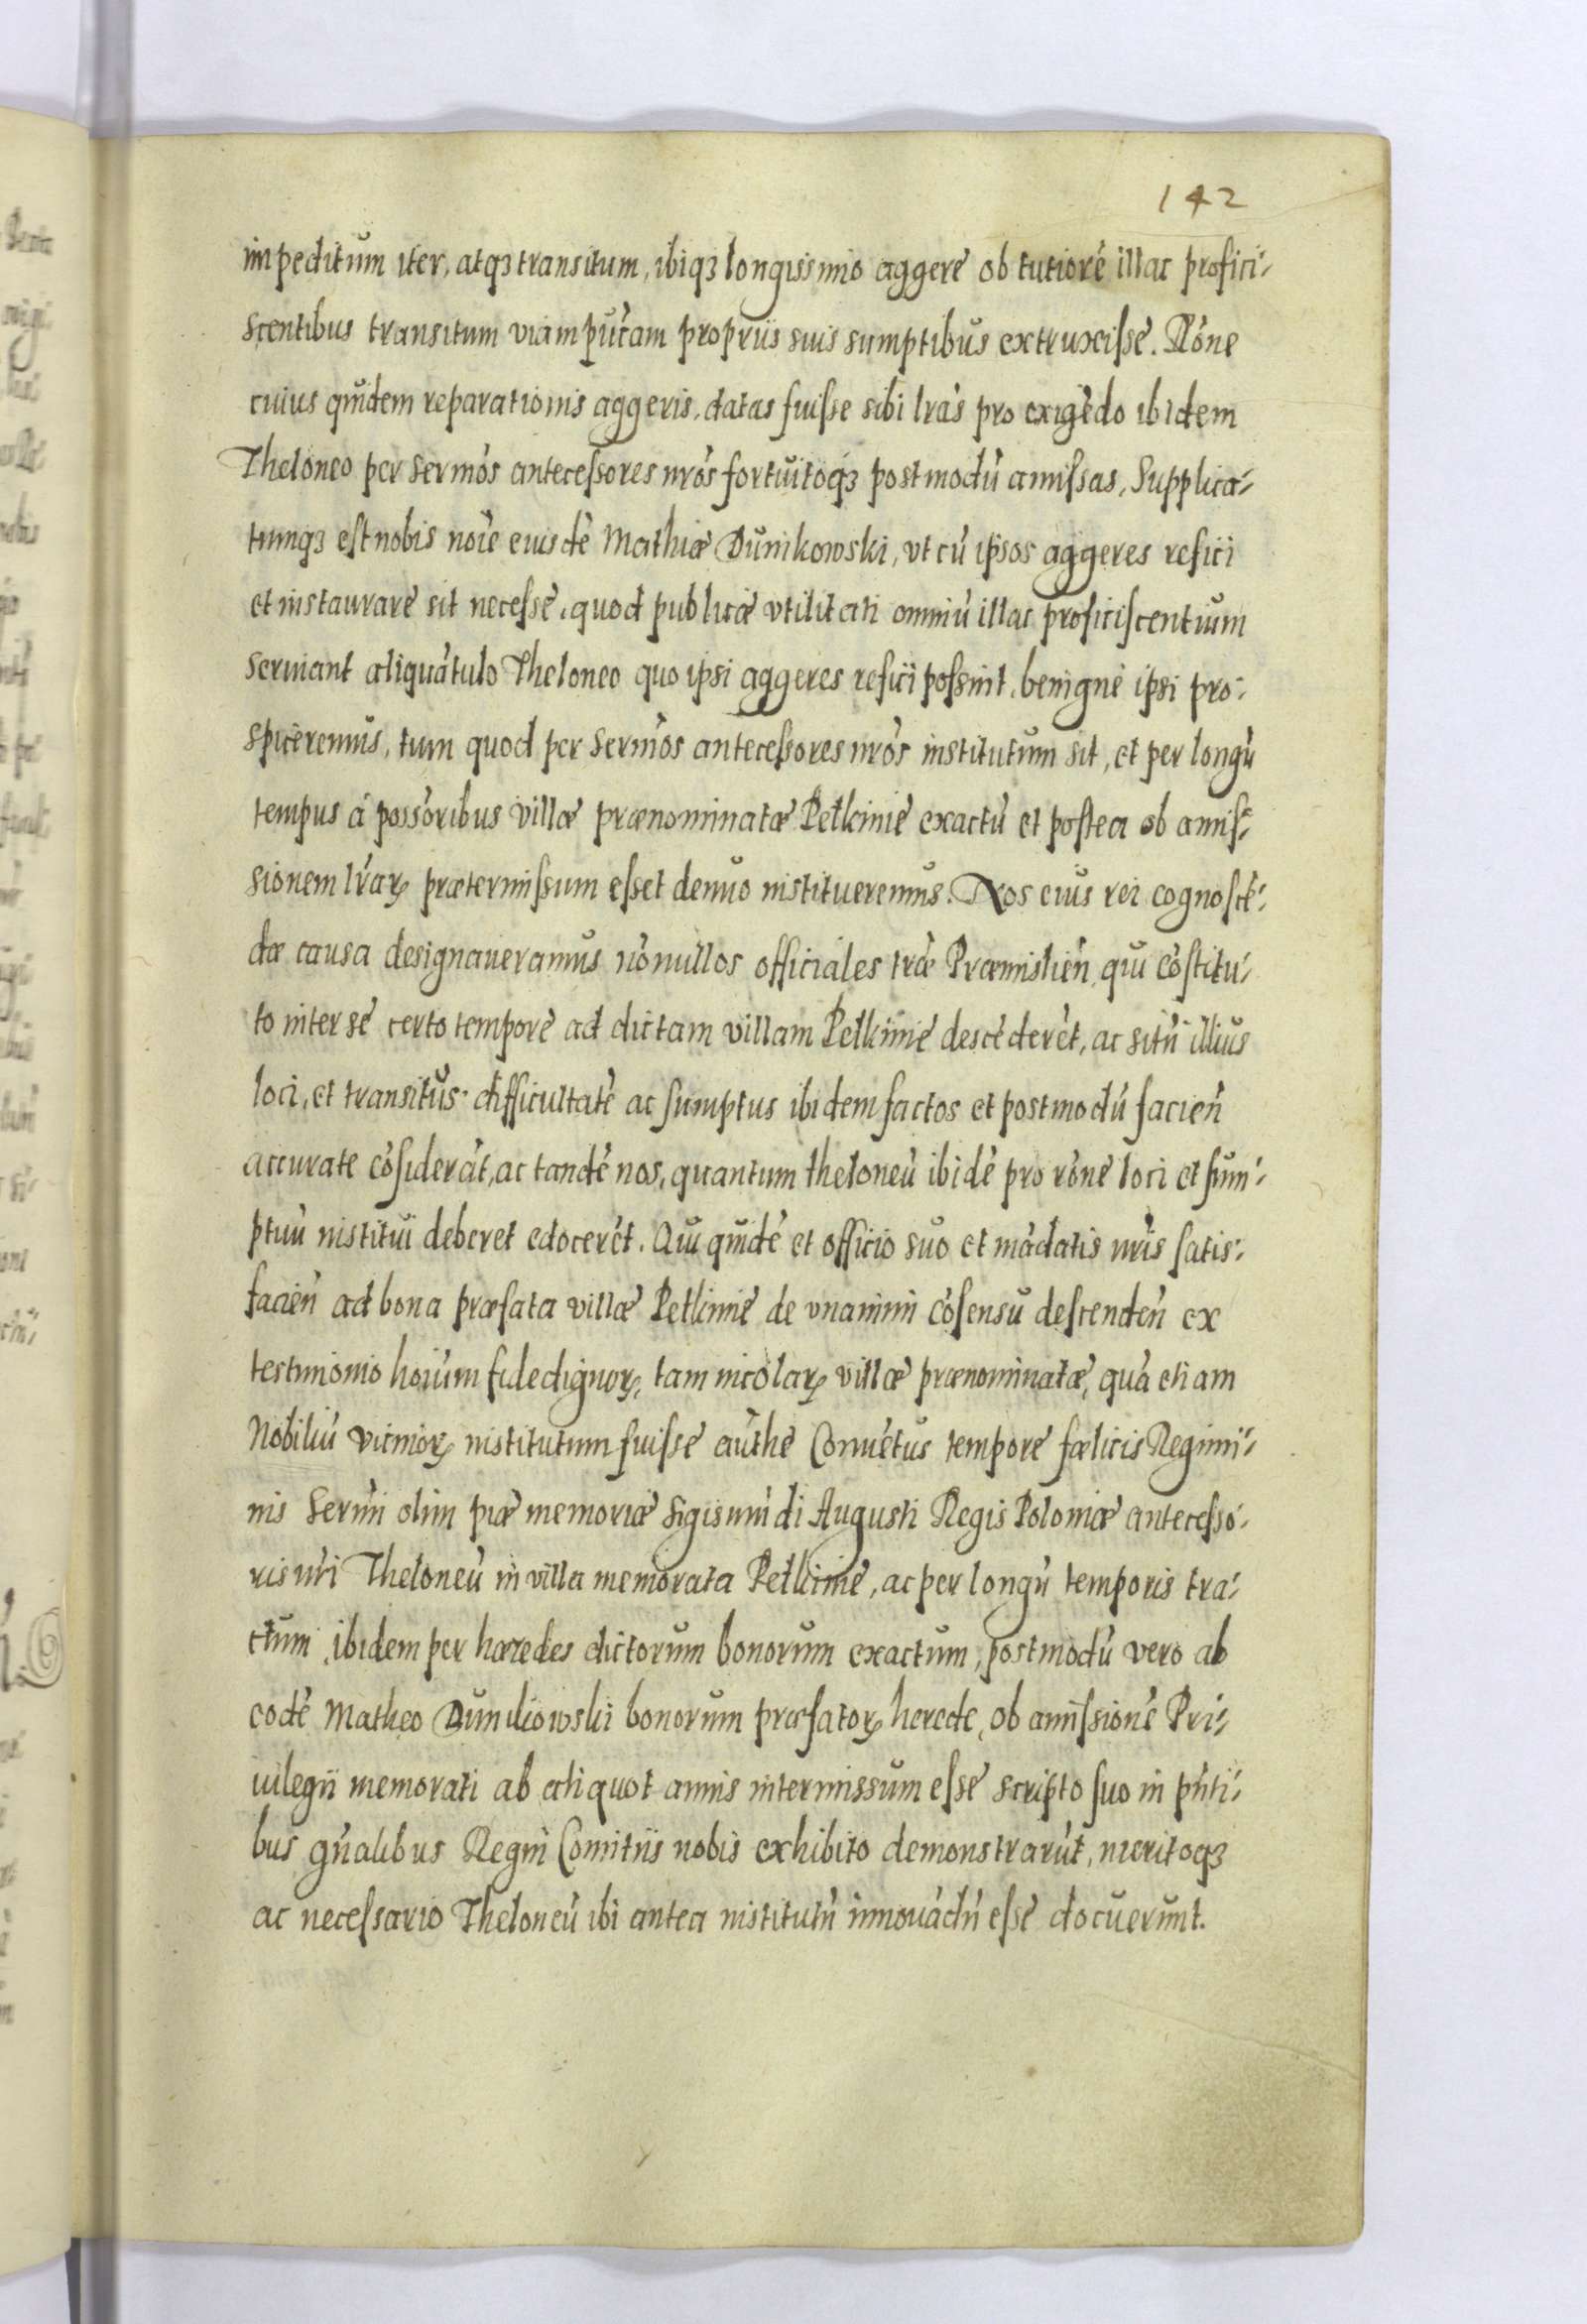 142
impeditum iter, atqꝫ transitum, ibiqꝫ longissimo aggere ob tutiorē illac profici-
scentibus transitum viam pub̃cam propriis suis sumptibus extruxisse. Rõne
cuius quidem reparationis aggeris, datas fuisse sibi lr̃as pro exigēdo ibidem
Theloneo per sermõs antecessores nr̃os fortuitoqꝫ postmodū amissas. Supplica-
tumqꝫ est nobis noi͂e eiusdē Mathiæ Dunikowski, vt cū ipsos aggeres refici
et instaurare sit necesse, quod publicæ vtilitati omniū illac proficiscentium
seruiant aliquātulo Theloneo quo ipsi aggeres refici possint, benigne ipsi pro-
spiceremus, tum quod per sermõs antecessores nr̃os institutum sit, et per longū
tempus à possõribus villæ prænominatæ Pełkinie exactū et postea ob amis-
sionem lr̃arꝝ prætermissum esset denuo institueremus. Nos eius rei cognoscē-
dæ causa designaueramus nōnullos officiales tr̃æ Præmislien̄ qui cōstitu-
to inter se certo tempore ad dictam villam Pełkinie descēderēt, ac sitū illius
loci, et transitus difficultatē ac sumptus ibidem factos et postmodū facien̄
accurate cōsiderāt, ac tandē nos, quantum theloneū ibidē pro rōne loci et sum-
ptuū institui deberet edocerēt. Qui quidē et officio suo et mādatis nr̃is satis-
facien̄ ad bona præfata villæ Pełkinie de vnanimi cōsensu descenden̄ ex
testimonio hoi͂um fide dignorꝝ, tam incolarꝝ villæ prænominatæ, quā etiam
Nobiliū vicinorꝝ institutum fuisse authē Conuētus tempore fœlicis Regimi-
nis Sermi olim piæ memoriæ Sigismūdi Augusti Regis Poloniæ antecesso-
ris nr̃i Theloneū in villa memorata Pełkinie, ac per longū temporis tra-
ctum ibidem per hæredes dictorum bonorum exactum, postmodū vero ab
eodē Matheo Dunikowski bonorum præfatorꝝ herede, ob amissionē Pri-
uilegii memorati ab aliquot annis intermissum esse scripto suo in pn̄ti-
bus gn̄alibus Regni Comitiis nobis exhibito demonstrarūt, meritoqꝫ
ac necessario Theloneū ibi antea institutū innouādū esse docuerunt.